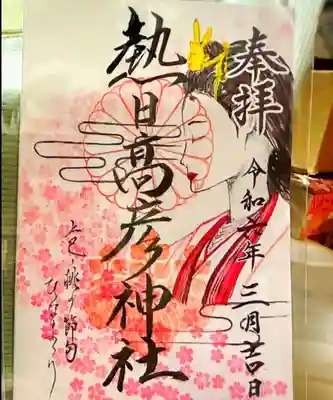 奉拝
令和六年三月吉日
熱日高彦神社
上巳 桃の節句
ひなまつり